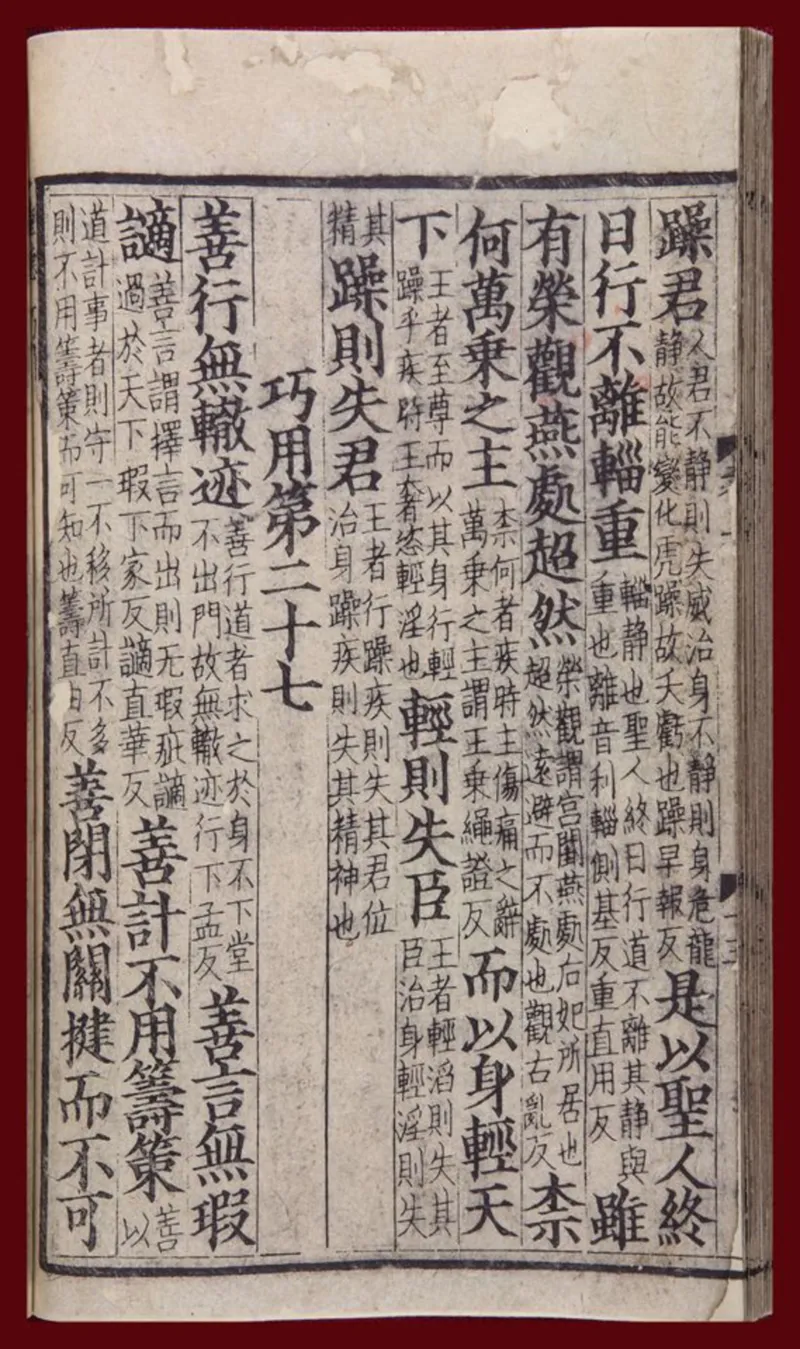 躁君人君不静則失威治身不静則身危龍静故能變化虎躁故夭虧也躁早報反是以聖人終
日行不離輜重輜静也聖人終日行道不離其静與重也離音利輜側基反重直用反雖
有榮觀燕處超然榮觀謂宫闕燕處后妃所居也超然遠避而不處也觀古亂反柰
何萬乗之主柰何者疾時主傷痛之辭萬乗之主謂王乗繩證反而以身輕天
下王者至尊而以其身行輕躁乎疾時王奢恣輕淫也輕則失臣王者輕滔則失其臣治身輕淫則失
其精躁則失君王者行躁疾則失其君位治身躁疾則失其精神也
巧用第二十七
善行無轍迹善行道者求之於身不下堂不出門故無轍迹行下孟反善言無瑕
讁善言謂擇言而出則无瑕疵讁過於天下瑕下家反讁直革反善計不用籌策善以
道計事者則守一不移所計不多則不用籌策而可知也籌直由反善閉無關揵而不可